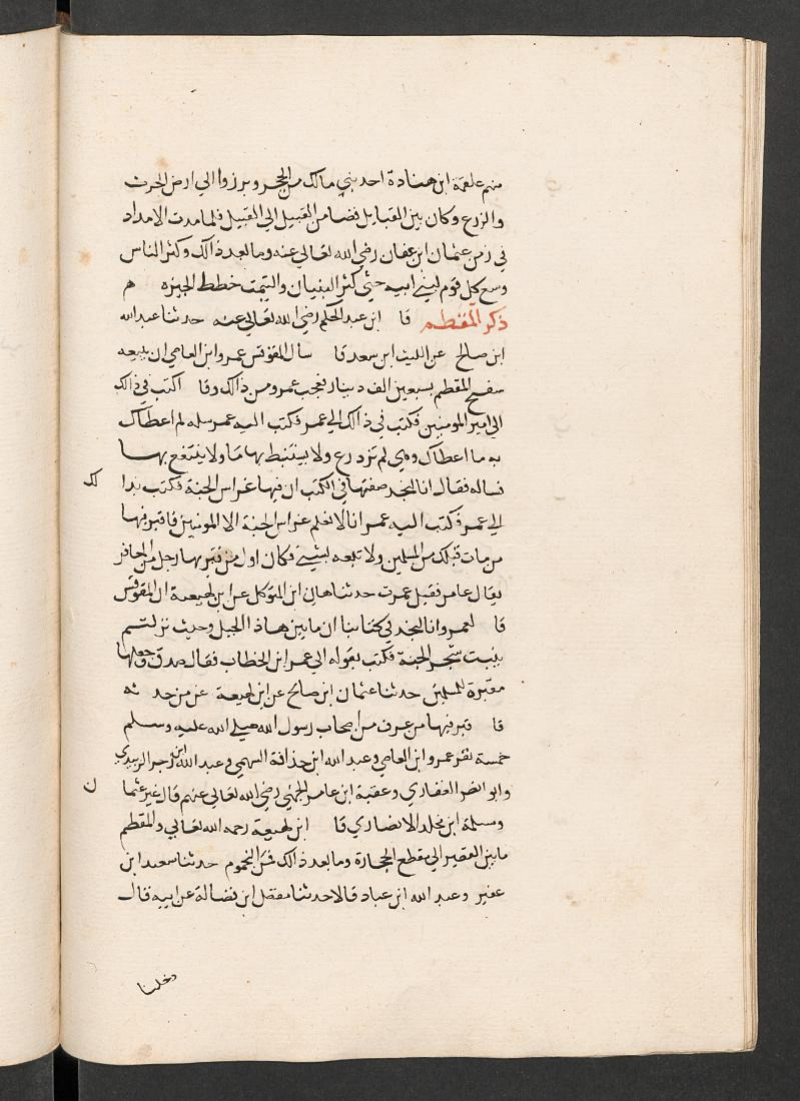 منهم علقمة ابن جنادة احد بني مالك من الحجر وبرزوا الي ارض الحرث
والزرع وكان بين القبايل فضا من القبيل الي القبيل فلما مدت الامداد
في زمن عثمان ابن عفان رضي الله تعالي عنه وما بعد ذالك وكثر الناس
وسع كل قوم لبني ابيه حتي كثر البنيان والتيمت خطط الجيزه هم
ذكر المقطم قا ابن عبد الحكم رضي الله تعالي عنه حدثنا عبد الله
ابن صالح عن الليث ابن سعد قا سال المقوقس عمرو ابن العاصي ان يبيعه
سفح المقطم بسبعين الف دينار فعجب عمرو من ذالك وقا اكتب في ذالك
الي امير المومنين فكتب في ذالك الي عمر فكتب اليه عمر سله لم اعطاك
به ما اعطاك وهي لم تزدرع ولا يستنبط بها ما ولا ينتفع بها
فساله فقال انا لنجد صفتها في الكتب ان فيها غراس الجنة فكتب بذا
لك
الي عمر فكتب اليه عمر انا لا نعلم غراس الجنة الا المومنين فاقبر فيها
من مات قبلك من المسلمين ولا تبعه بشيي فكان اول من قبر بها رجل من المعافر
يقال عامر فقيل عمرت حدثنا هاني ابن المتوكل عن ابن لهيعة ان المقوقس
قا لعمرو انا لنجد في كتابنا ان ما بين هاذا الجبل وحيث نزلتم
ينبت شجر الجنة فكتب بقوله الي عمر ابن الخطاب فقال صدق وجعلها
مقبرة للمسلمين حدثنا عثمان ابن صالح عن ابن لهيعة عن من حد ثه
قا قبر فيها من عرف من اصحاب رسول الله صلي الله عليه وسلم
خمسة نفر عمرو ابن العاصي وعبد الله ابن حذافة السهمي وعبد الله ابن جزء الزبيدي
وابو بصر الغفاري وعقبة ابن عامر الجهني رضي الله تعالي عنهم قال غير عثما
ن
ومسلمة ابن مخلد الانصاري قا ابن لهيعة رحمه الله تعالي والمقطم
ما بين القصير الي مقطع الحجارة وما بعد ذالك فمن اليحموم حدثنا سعيد ابن
عفير وعبد الله ابن عباد قالا حدثنا مفضل ابن فضالة عن ابيه قال
دخلنا